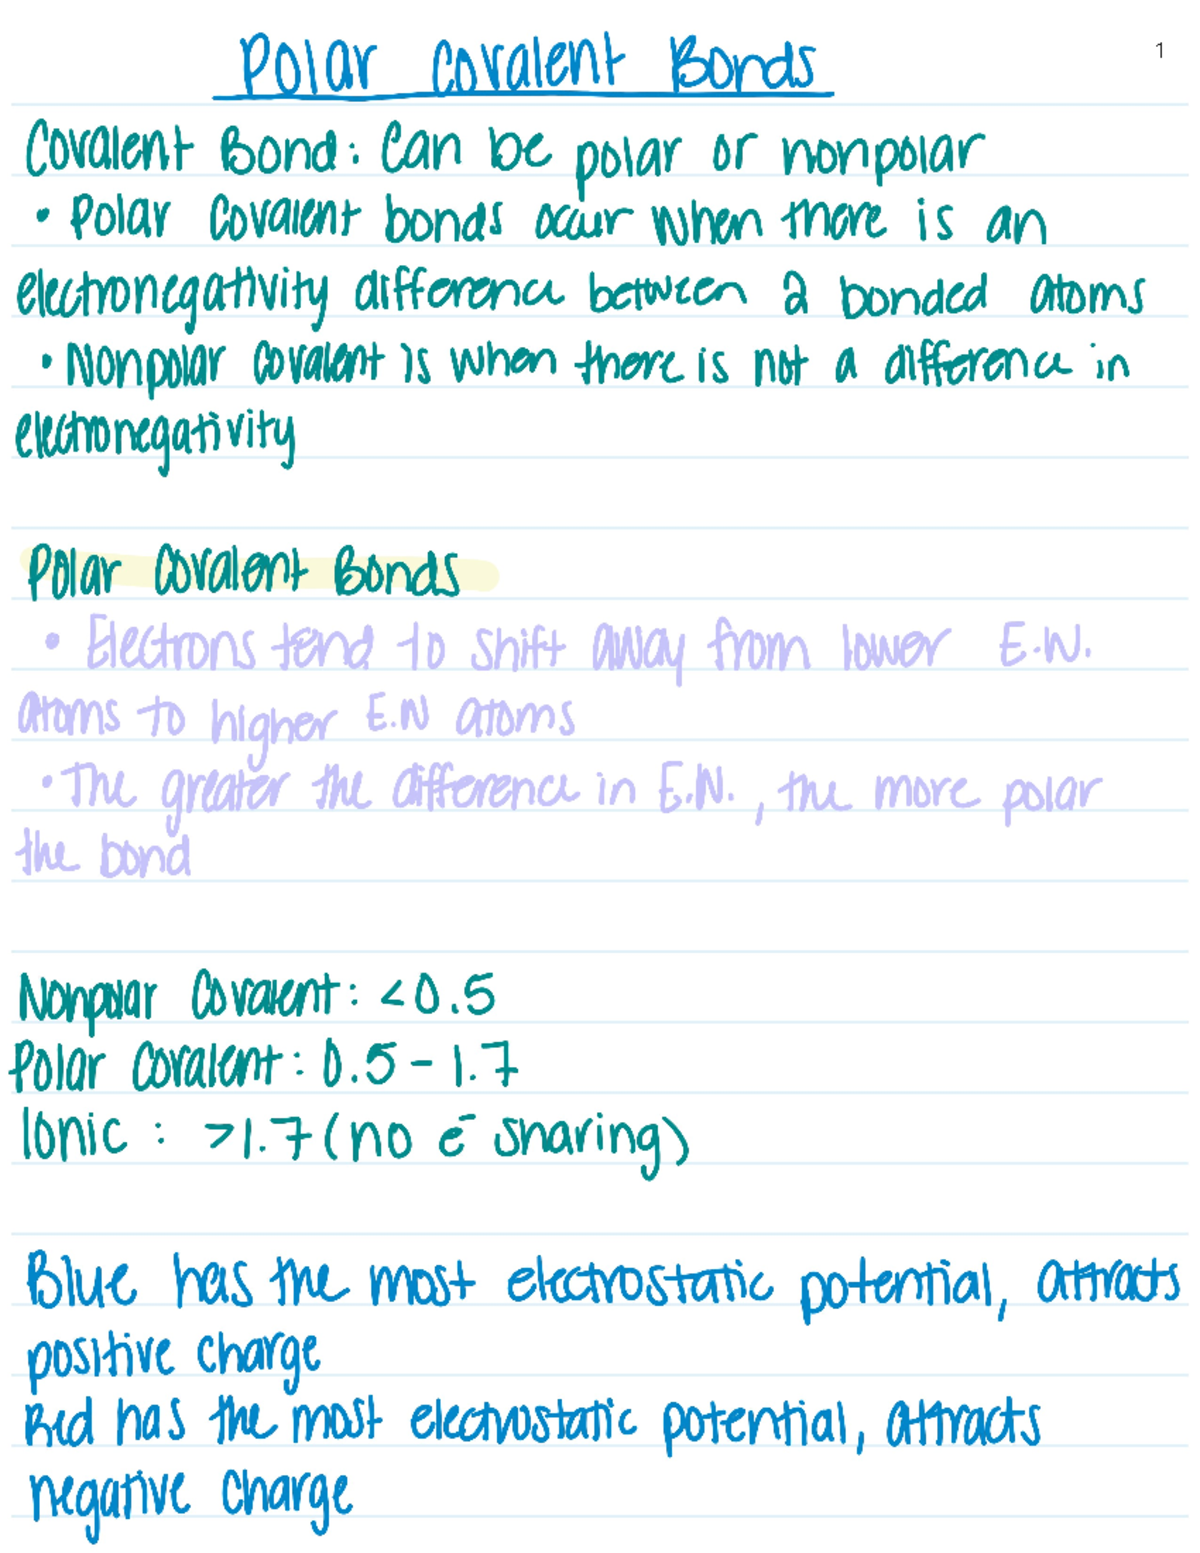 Polar Covalent Bonds
1
Covalent Bond: Can be polar or nonpolar
• Polar Covalent bonds occur when there is an
electronegativity difference between 2 bonded atoms
• Nonpolar Covalent is when there is not a difference in
electronegativity
Polar Covalent Bonds
• Electrons tend to shift away from lower E.N.
atoms to higher E.N atoms
• The greater the difference in E.N., the more polar
the bond
Nonpolar Covalent: <0.5
Polar Covalent: 0.5 - 1.7
Ionic : >1.7 (no e⁻ sharing)
Blue has the most electrostatic potential, attracts
positive charge
Red has the most electrostatic potential, attracts
negative charge